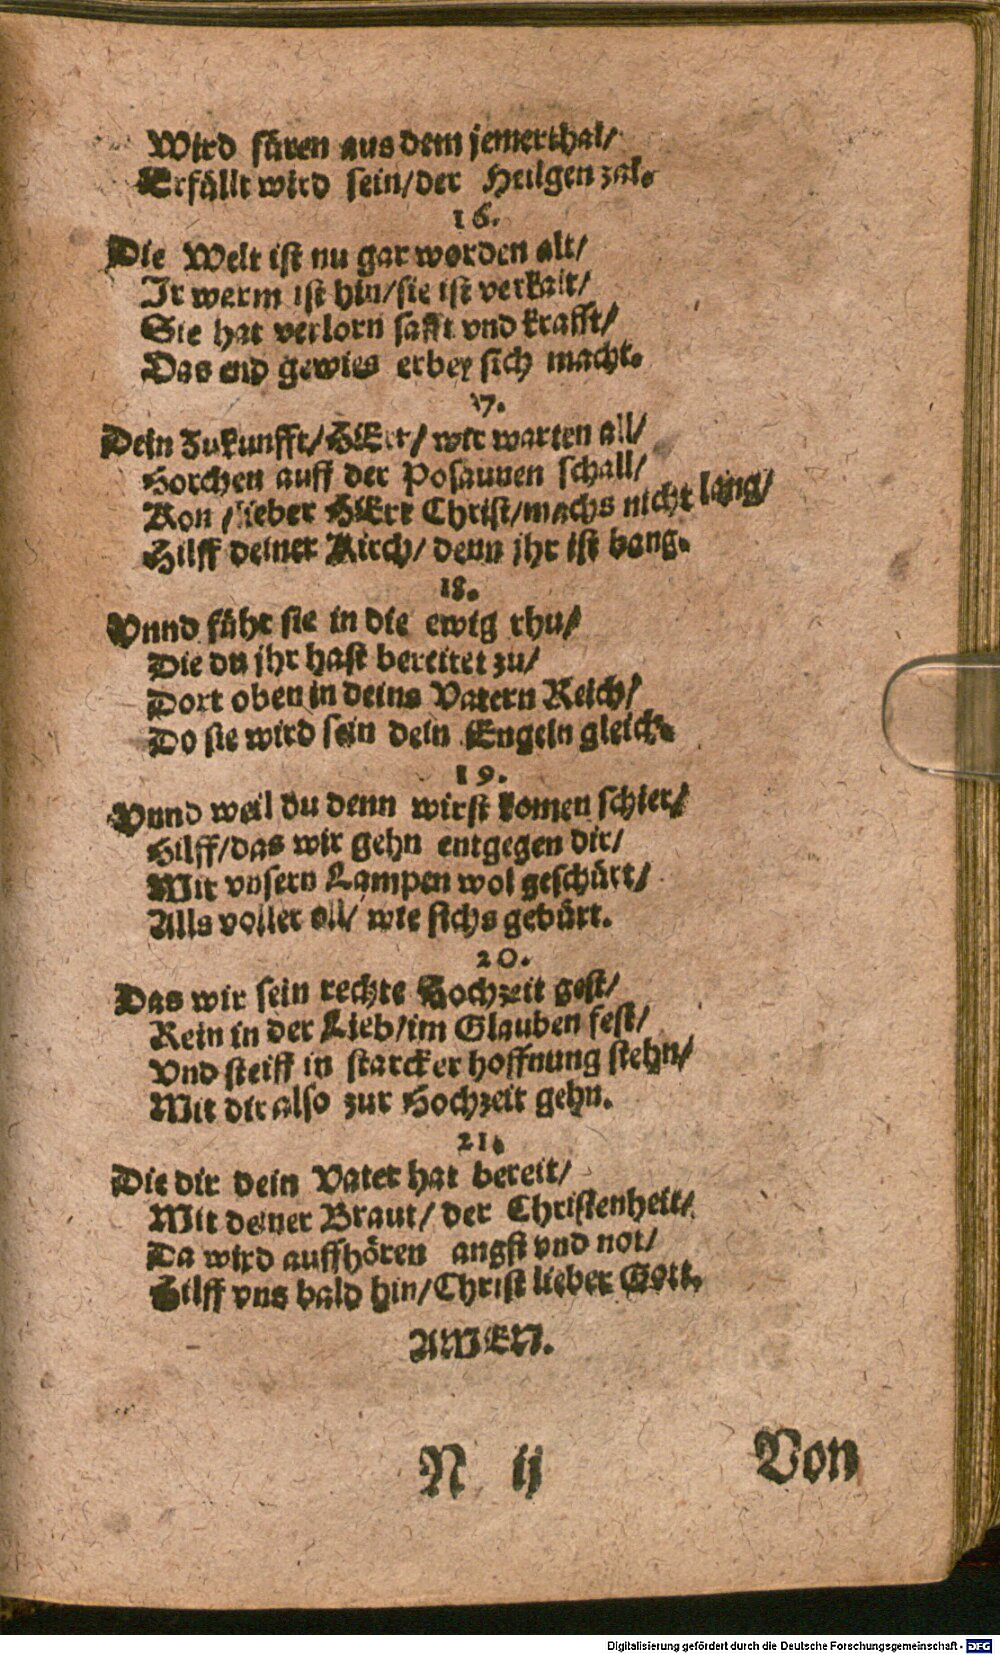 Wird füren aus dem jemerthal/
Erfüllt wird sein/der Heilgen zal.
16.
Die Welt ist nu gar worden alt/
Ir werm ist hin/sie ist verkalt/
Sie hat verlorn safft vnd krafft/
Das end gewies erbey sich macht.
17.
Dein Zukunfft/HErr/ wir warten all/
Horchen auff der Posaunen schall/
Kom /lieber HErr Christ/machs nicht lang/
Hilff deiner Kirch/ denn jhr ist bang.
18.
Vnnd führ sie in die ewig rhu/
Die du jhr hast bereitet zu/
Dort oben in deins Vatern Reich/
Do sie wird sein dein Engeln gleich.
19.
Vnnd weil du denn wirst komen schier/
Hilff/das wir gehn entgegen dir/
Mit vnsern Lampen wol geschürt/
Alls voller öll/ wie sichs gebürt.
20.
Das wir sein rechte Hochzeit gest/
Rein in der Lieb/im Glauben fest/
Vnd steiff in starcker hoffnung stehn/
Mit dir also zur Hochzeit gehn.
21.
Die dir dein Vater hat bereit/
Mit deiner Braut/ der Christenheit/
Da wird auffhören angst vnd not/
Hilff vns bald hin/Christ lieber Gott.
AMEN.
N ij Von
Digitalisierung gefördert durch die Deutsche Forschungsgemeinschaft - DFG